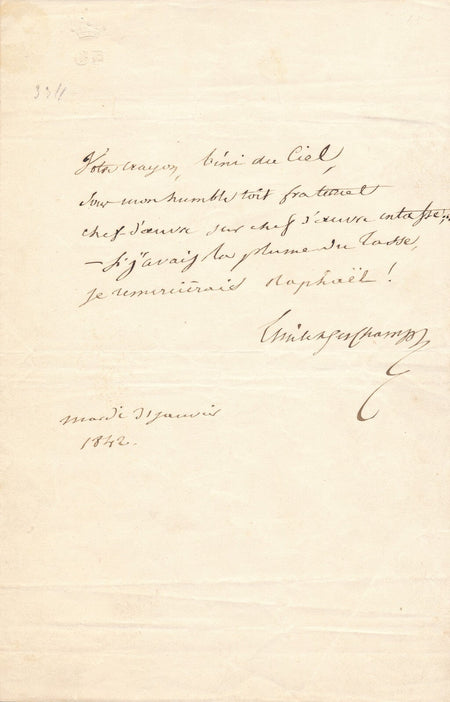 334
Votre crayon, béni du Ciel,
Sous mon humble toit fraternel
chef-d'œuvre sur chef d'œuvre intasse;..
— Si j'avais la plume du Tasse,
je remercierais Raphaël !
Emile Deschamps
mardi 31 janvier
1842.